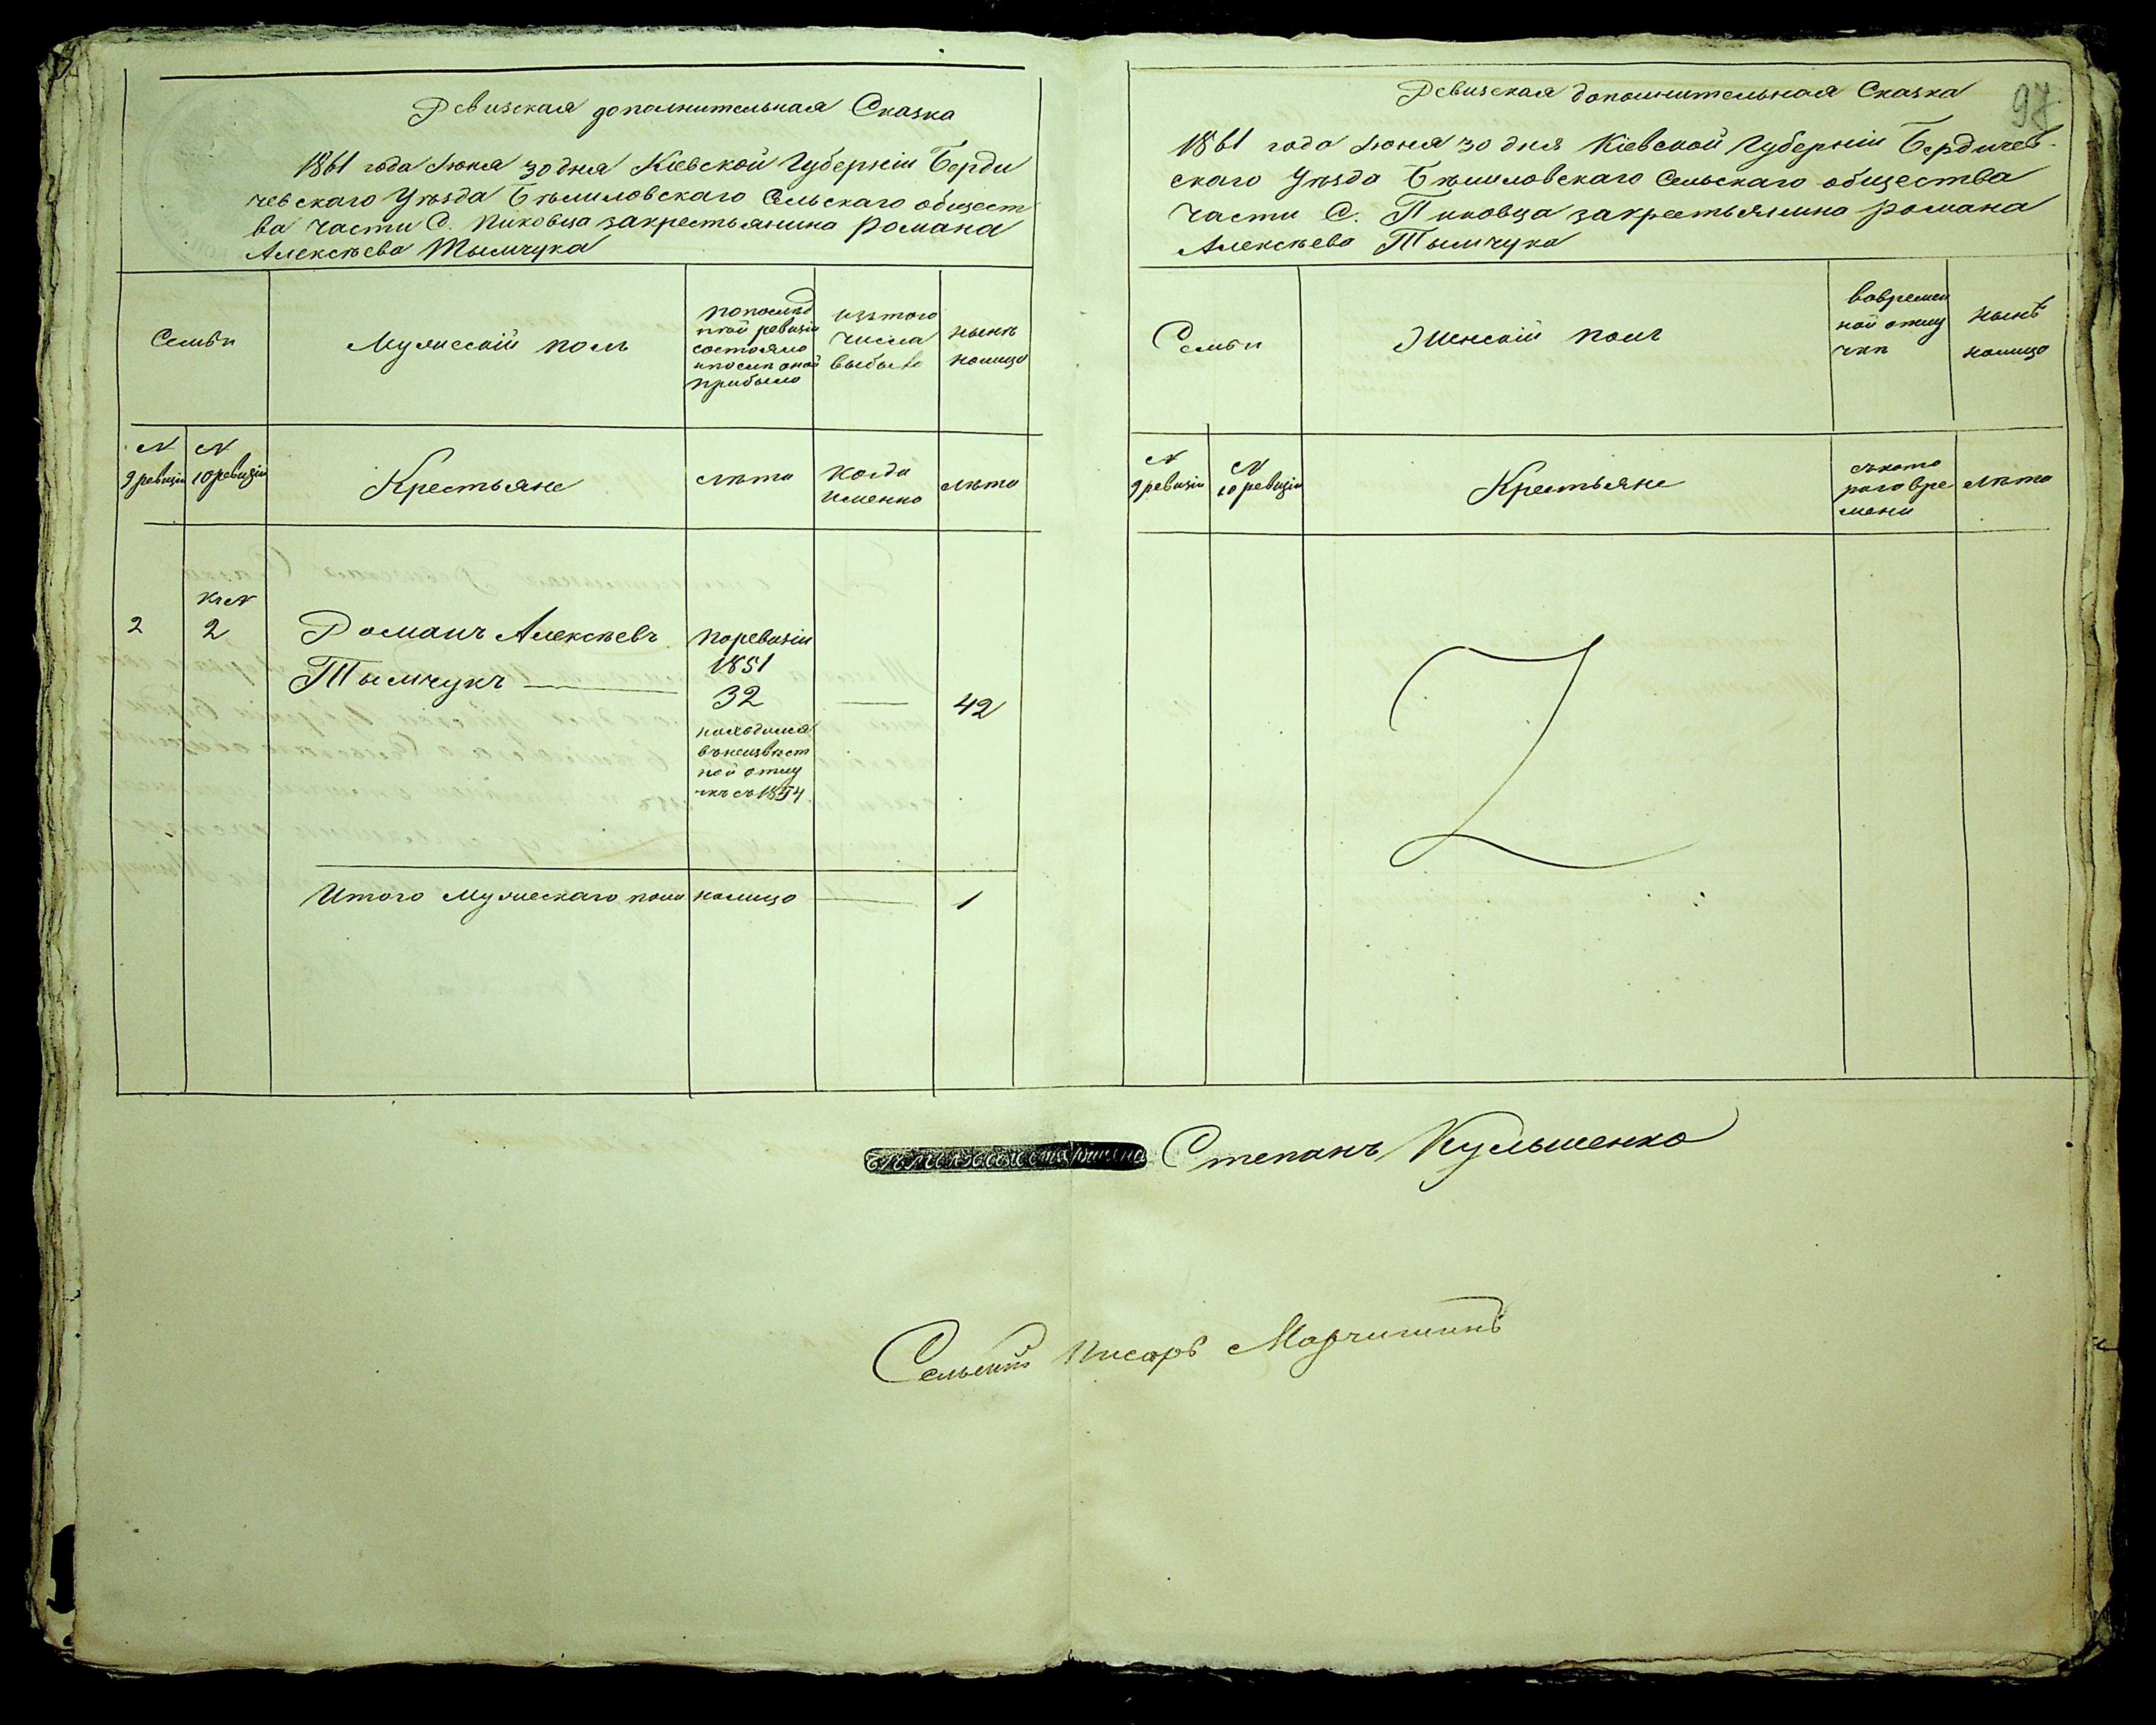 Ревизская дополнительная Сказка
1861 года Июня 30 дня Кіевской Губерніи Берди
чевскаго Уѣзда Бѣлиловскаго Сельскаго общест
ва части С. Пиковца закрестьянина Романа
Алексѣева Тымчука
Семьи
Мужескій полъ
по послѣд
ней ревизіи
состояло
и послѣ оной
прибыло
изъ того
числа
выбыло
нынѣ
налицо
N
9 ревизіи
N
10 ревизіи
Крестьяне
лѣта
Когда
именно
лѣта
2
къ N
2
Романъ Алексѣевъ
Тымчукъ
по ревизіи
1851
32
находился
въ неизвѣст
ной отлу
чкѣ съ 1854
42
Итого мужескаго пола налицо
1
97
Ревизская дополнительная Сказка
1861 года Июня 30 дня Кіевской Губерніи Бердичев-
скаго Уѣзда Бѣлиловскаго Сельскаго общества
части С. Пиковца закрестьянина Романа
Алексѣева Тымчука
Семьи
Женскій полъ
во времен
ной отлу
чкѣ
нынѣ
налицо
N
9 ревизіи
N
10 ревизіи
Крестьяне
съ кото
раго вре
мени
лѣта
Степанъ Кульшенко
Сельскій Писарь Марчишинъ